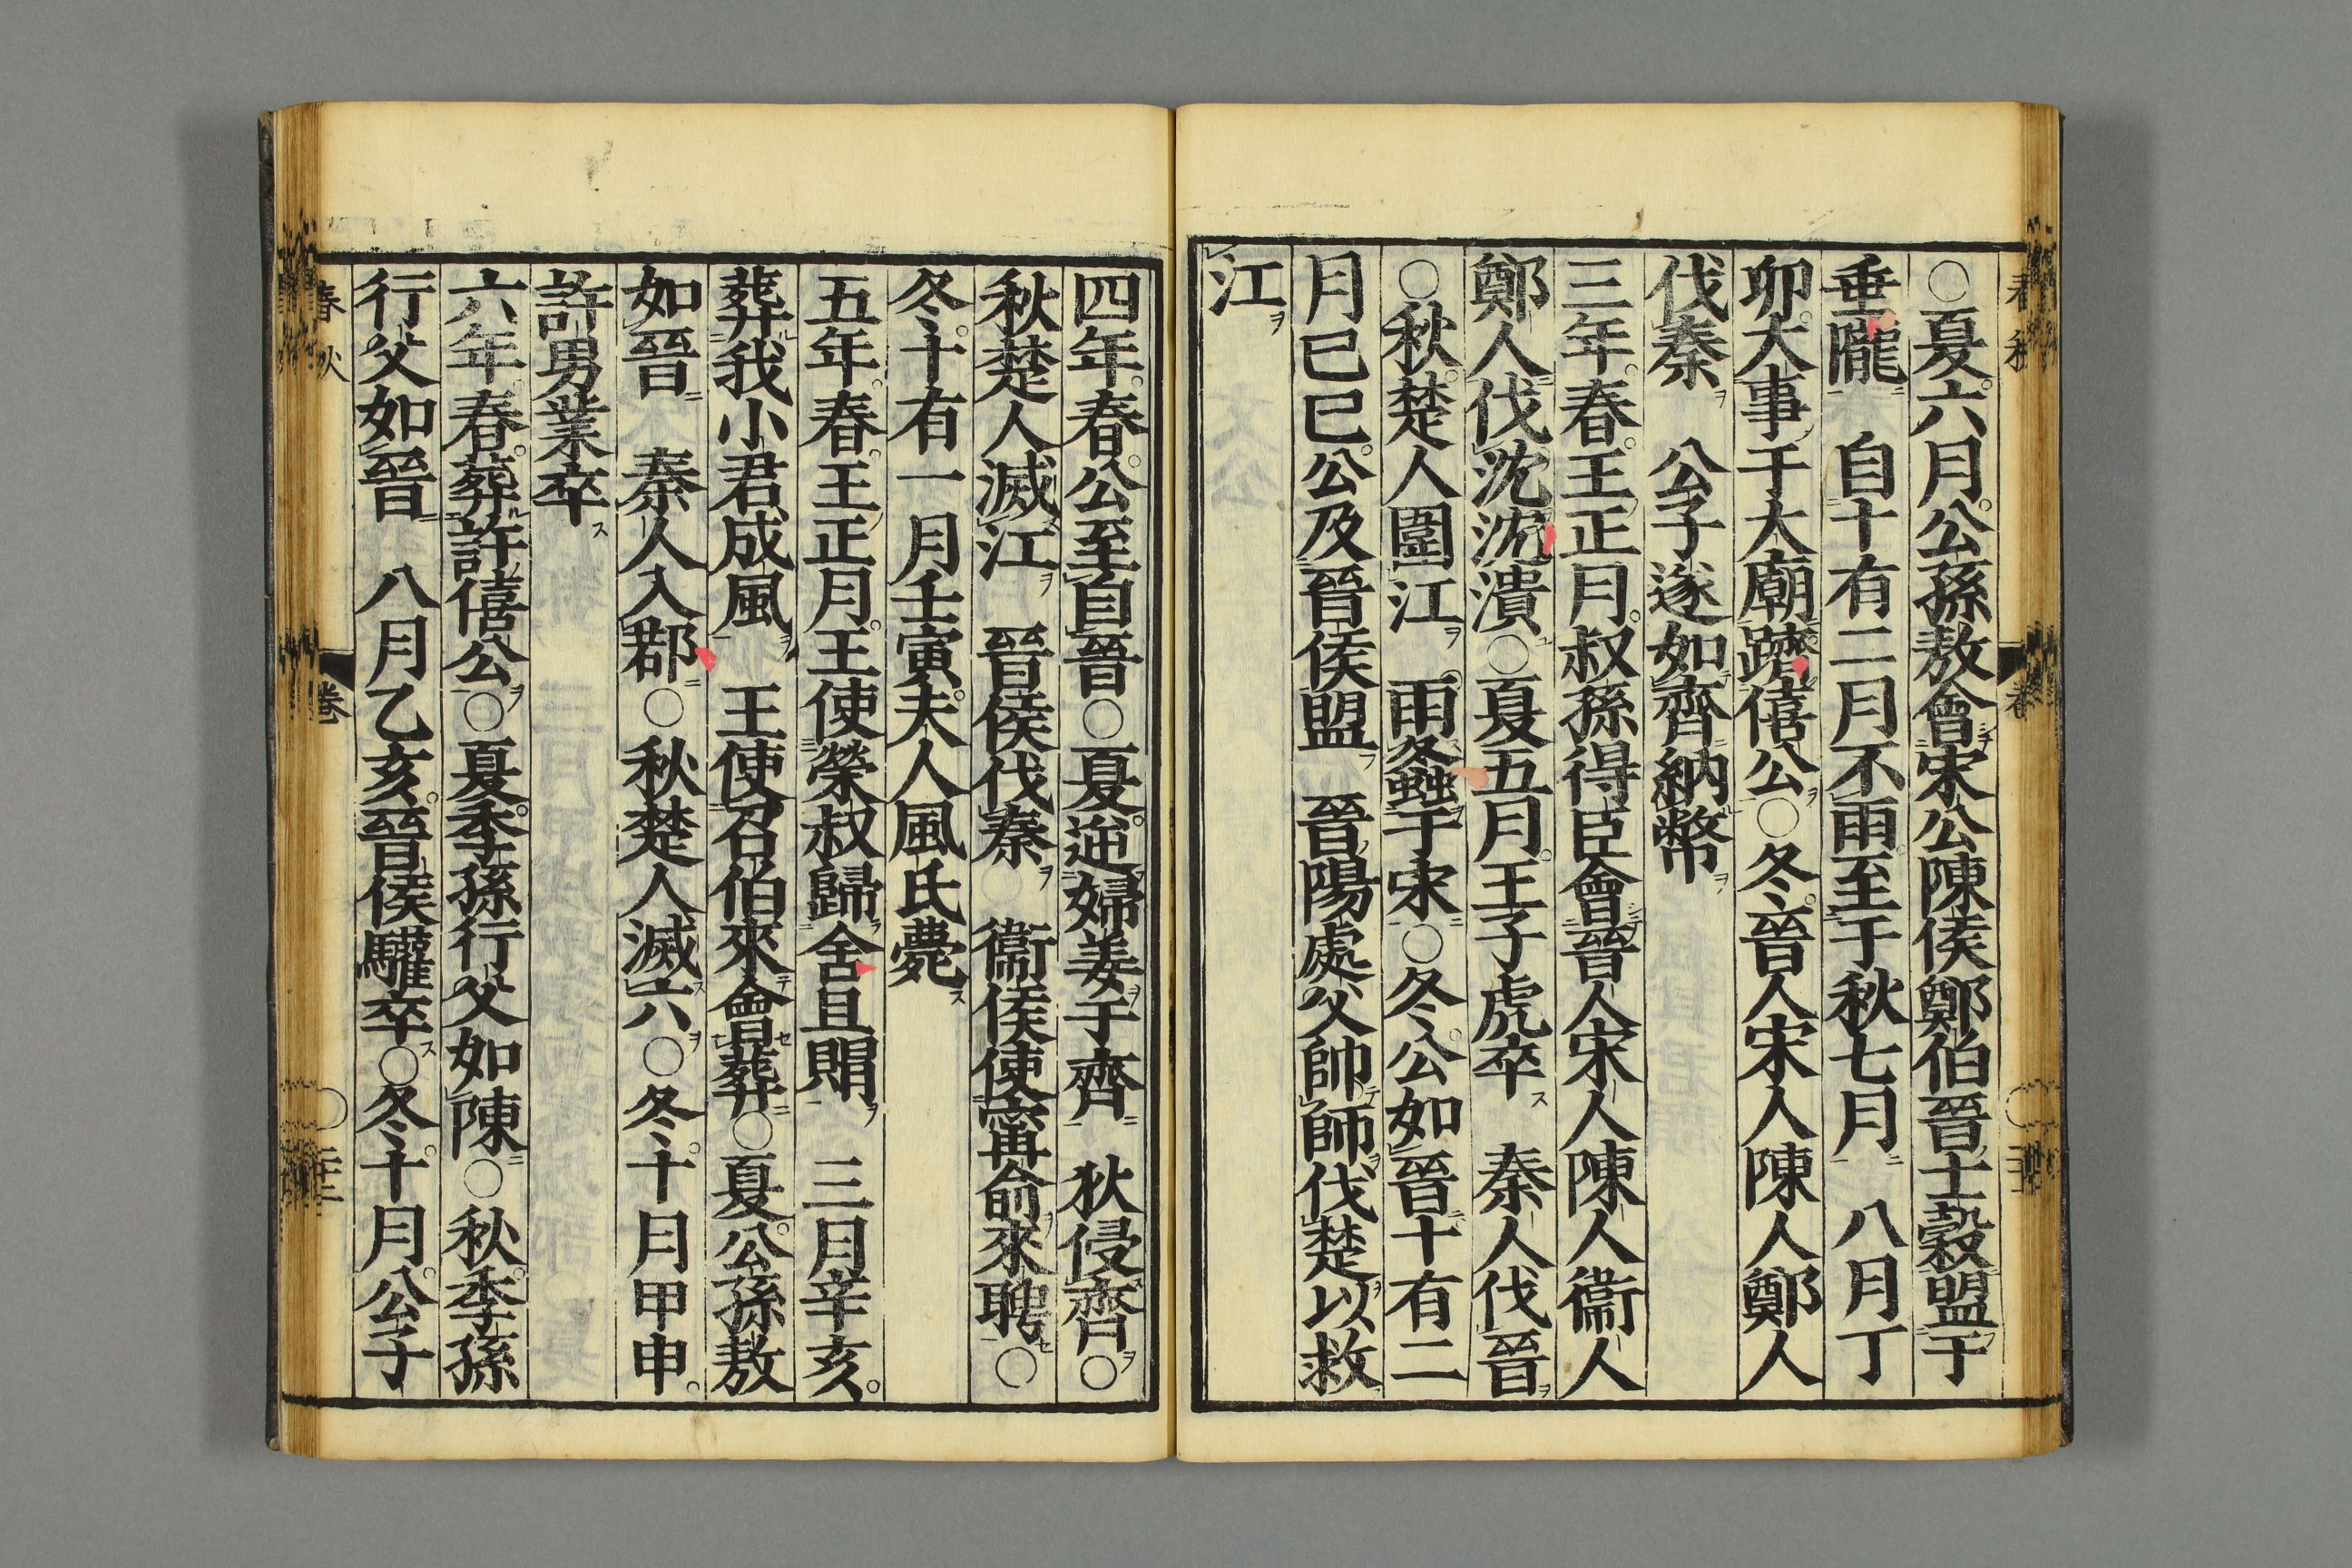 ○夏六月公孫敖會宋公陳侯鄭伯晉士縠盟于
垂隴　自十有二月不雨至于秋七月　八月丁
卯大事于大廟躋僖公○冬晉人宋人陳人鄭人
伐秦　公子遂如齊納幣
三年春王正月叔孫得臣會晉人宋人陳人衞人
鄭人伐沈沈潰○夏五月王子虎卒　秦人伐晉
○秋楚人圍江　雨螽于宋○冬公如晉十有二
月己巳公及晉侯盟　晉陽處父帥師伐楚以救
江
四年春公至自晉○夏逆婦姜于齊　狄侵齊○
秋楚人滅江　晉侯伐秦○衞侯使甯俞來聘○
冬十有一月壬寅夫人風氏薨
五年春王正月王使榮叔歸含且賵　三月辛亥
葬我小君成風　王使召伯來會葬○夏公孫敖
如晉　秦人入鄀○秋楚人滅六○冬十月甲申
許男業卒
六年春葬許僖公○夏季孫行父如陳○秋季孫
行父如晉　八月乙亥晉侯驩卒○冬十月公子
春秋
卷